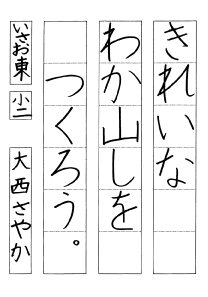 きれいな
わか山しを
つくろう。
いさお東
小二
大西さやか